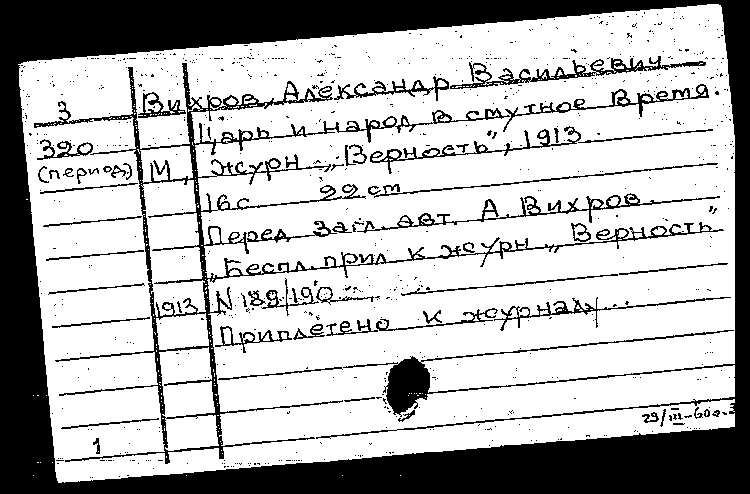 3
Вихров, Александр Васильевич
Царь и народ в смутное время.
320
(период) М, журн. „Верность", 1913.
16 с 22 cm
Перед загл. авт. А. Вихров.
„Беспл. прил. к журн. „Верность"
1913 N 189/190
Приплетено к журналу...
1
29/III-60г.